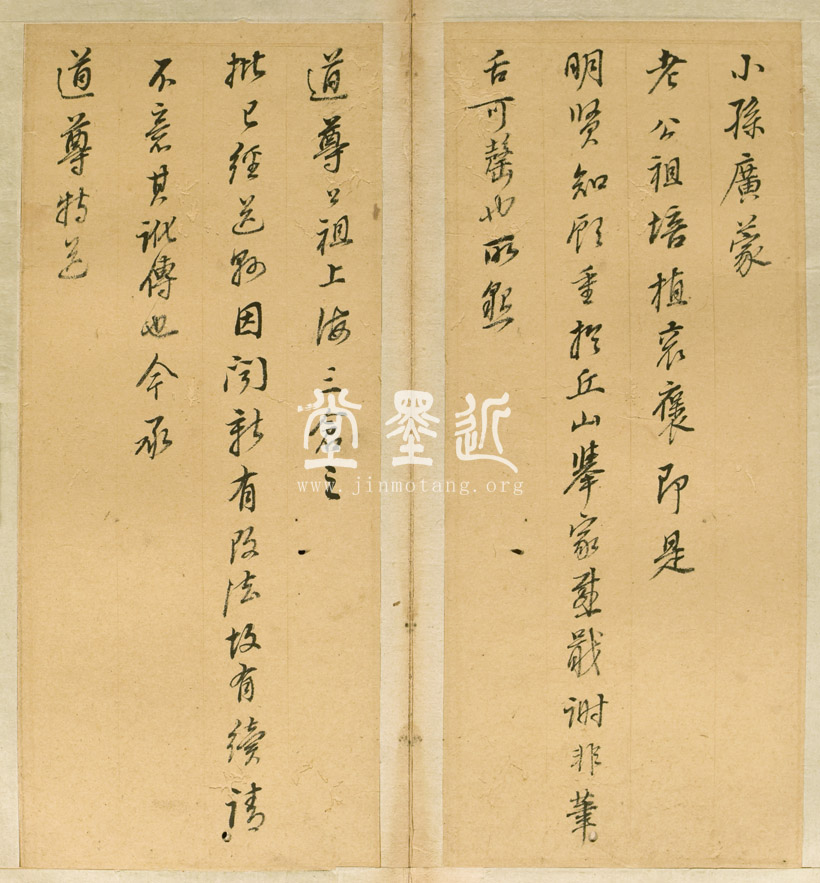 小孫廣蒙
老公祖培植衮褒即是
明賢知顧重於丘山舉家感戢謝非筆
舌可罄也所懇
道尊公祖上海三倉之
批已經送縣因聞新有改法故有續請
不意其訛傳也今承
道尊特送
近墨堂
www.jinmotang.org